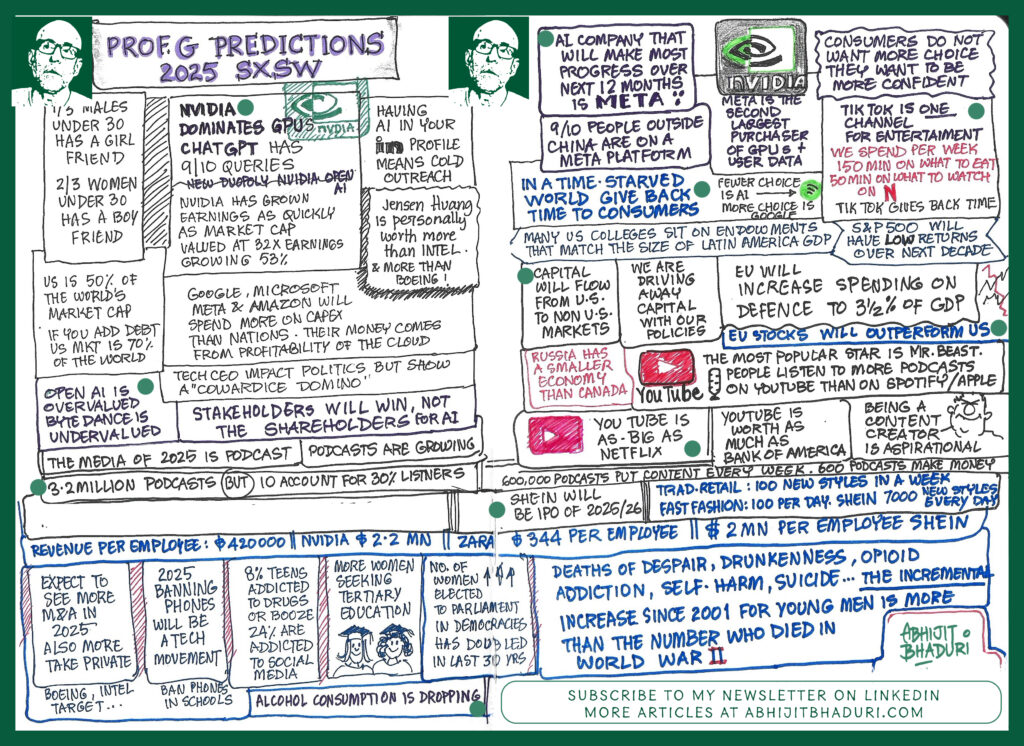 PROF. G PREDICTIONS
2025 SXSW
1/3 MALES
UNDER 30
HAS A GIRL
FRIEND
2/3 WOMEN
UNDER 30
HAS A BOY
FRIEND
NVIDIA
DOMINATES GPUs
CHATGPT HAS
9/10 QUERIES
NEW DUOPOLY NVIDIA OPEN
AI
NVIDIA
NVIDIA HAS GROWN
EARNINGS AS QUICKLY
AS MARKET CAP
VALUED AT 32X EARNINGS
GROWING 53%
HAVING
AI IN YOUR
in PROFILE
MEANS COLD
OUTREACH
Jensen Huang
is personally
worth more
than INTEL.
& MORE THAN
BOEING!
US IS 50% OF
THE WORLD'S
MARKET CAP
IF YOU ADD DEBT
US MKT IS 70%
OF THE WORLD
GOOGLE, MICROSOFT
META & AMAZON WILL
SPEND MORE ON CAPEX
THAN NATIONS. THEIR MONEY COMES
FROM PROFITABILITY OF THE CLOUD
TECH CEO IMPACT POLITICS BUT SHOW
A "COWARDICE DOMINO"
OPEN AI IS
OVERVALUED
BYTEDANCE IS
UNDERVALUED
STAKEHOLDERS WILL WIN, NOT
THE SHAREHOLDERS FOR AI
THE MEDIA OF 2025 IS PODCAST
PODCASTS ARE GROWING
3.2 MILLION PODCASTS BUT 10 ACCOUNT FOR 30% LISTNERS
AI COMPANY THAT
WILL MAKE MOST
PROGRESS OVER
NEXT 12 MONTHS
IS META
9/10 PEOPLE OUTSIDE
CHINA ARE ON A
META PLATFORM
NVIDIA
META IS THE
SECOND
LARGEST
PURCHASER
OF GPUs +
USER DATA
CONSUMERS DO NOT
WANT MORE CHOICE
THEY WANT TO BE
MORE CONFIDENT
TIKTOK IS ONE
CHANNEL
FOR ENTERTAIMENT
WE SPEND PER WEEK
150 MIN ON WHAT TO EAT
50 MIN ON WHAT TO WATCH
ON N
TIKTOK GIVES BACK TIME
IN A TIME-STARVED
WORLD GIVE BACK
TIME TO CONSUMERS
FEWER CHOICE
IS AI
MORE CHOICE IS
GOOGLE
MANY US COLLEGES SIT ON ENDOWMENTS
THAT MATCH THE SIZE OF LATIN AMERICA GDP
S&P 500 WILL
HAVE LOW RETURNS
OVER NEXT DECADE
CAPITAL
WILL FLOW
FROM U.S.
TO NON U.S.
MARKETS
WE ARE
DRIVING
AWAY
CAPITAL
WITH OUR
POLICIES
EU WILL
INCREASE SPENDING ON
DEFENCE TO 3½% OF GDP
EU STOCKS WILL OUTPERFORM US
RUSSIA HAS
A SMALLER
ECONOMY
THAN CANADA
YouTube
THE MOST POPULAR STAR IS MR. BEAST.
PEOPLE LISTEN TO MORE PODCASTS
ON YOUTUBE THAN ON SPOTIFY/APPLE
YOU TUBE IS
AS-BIG AS
NETFLIX
YOUTUBE IS
WORTH AS
MUCH AS
BANK OF AMERICA
BEING A
CONTENT
CREATOR
IS ASPIRATIONAL
600,000 PODCASTS PUT CONTENT EVERY WEEK. 600 PODCASTS MAKE MONEY
SHEIN WILL
BE IPO OF 2025/26
TRAD-RETAIL: 100 NEW STYLES IN A WEEK
FAST FASHION: 100 PER DAY. SHEIN 7000 NEW STYLES
EVERY DAY
REVENUE PER EMPLOYEE: $420000 || NVIDIA $ 2.2 MN || ZARA $ 344 PER EMPLOYEE || $ 2 MN PER EMPLOYEE SHEIN
EXPECT TO
SEE MORE
M&A IN
2025
ALSO MORE
TAKE PRIVATE
BOEING, INTEL
TARGET...
2025
BANNING
PHONES
WILL BE
A TECH
MOVEMENT
BAN PHONES
IN SCHOOLS
8% TEENS
ADDICTED
TO DRUGS
OR BOOZE
24% ARE
ADDICTED
TO SOCIAL
MEDIA
MORE WOMEN
SEEKING
TERTIARY
EDUCATION
NO. OF
WOMEN
ELECTED
TO PARLIAMENT
IN DEMOCRACIES
HAS DOUBLED
IN LAST 30 YRS
ALCOHOL CONSUMPTION IS DROPPING
DEATHS OF DESPAIR, DRUNKENNESS, OPIOID
ADDICTION, SELF-HARM, SUICIDE... THE INCREMENTAL
INCREASE SINCE 2001 FOR YOUNG MEN IS MORE
THAN THE NUMBER WHO DIED IN
WORLD WAR II
ABHIJIT
BHADURI
SUBSCRIBE TO MY NEWSLETTER ON LINKEDIN
MORE ARTICLES AT ABHIJITBHADURI.COM